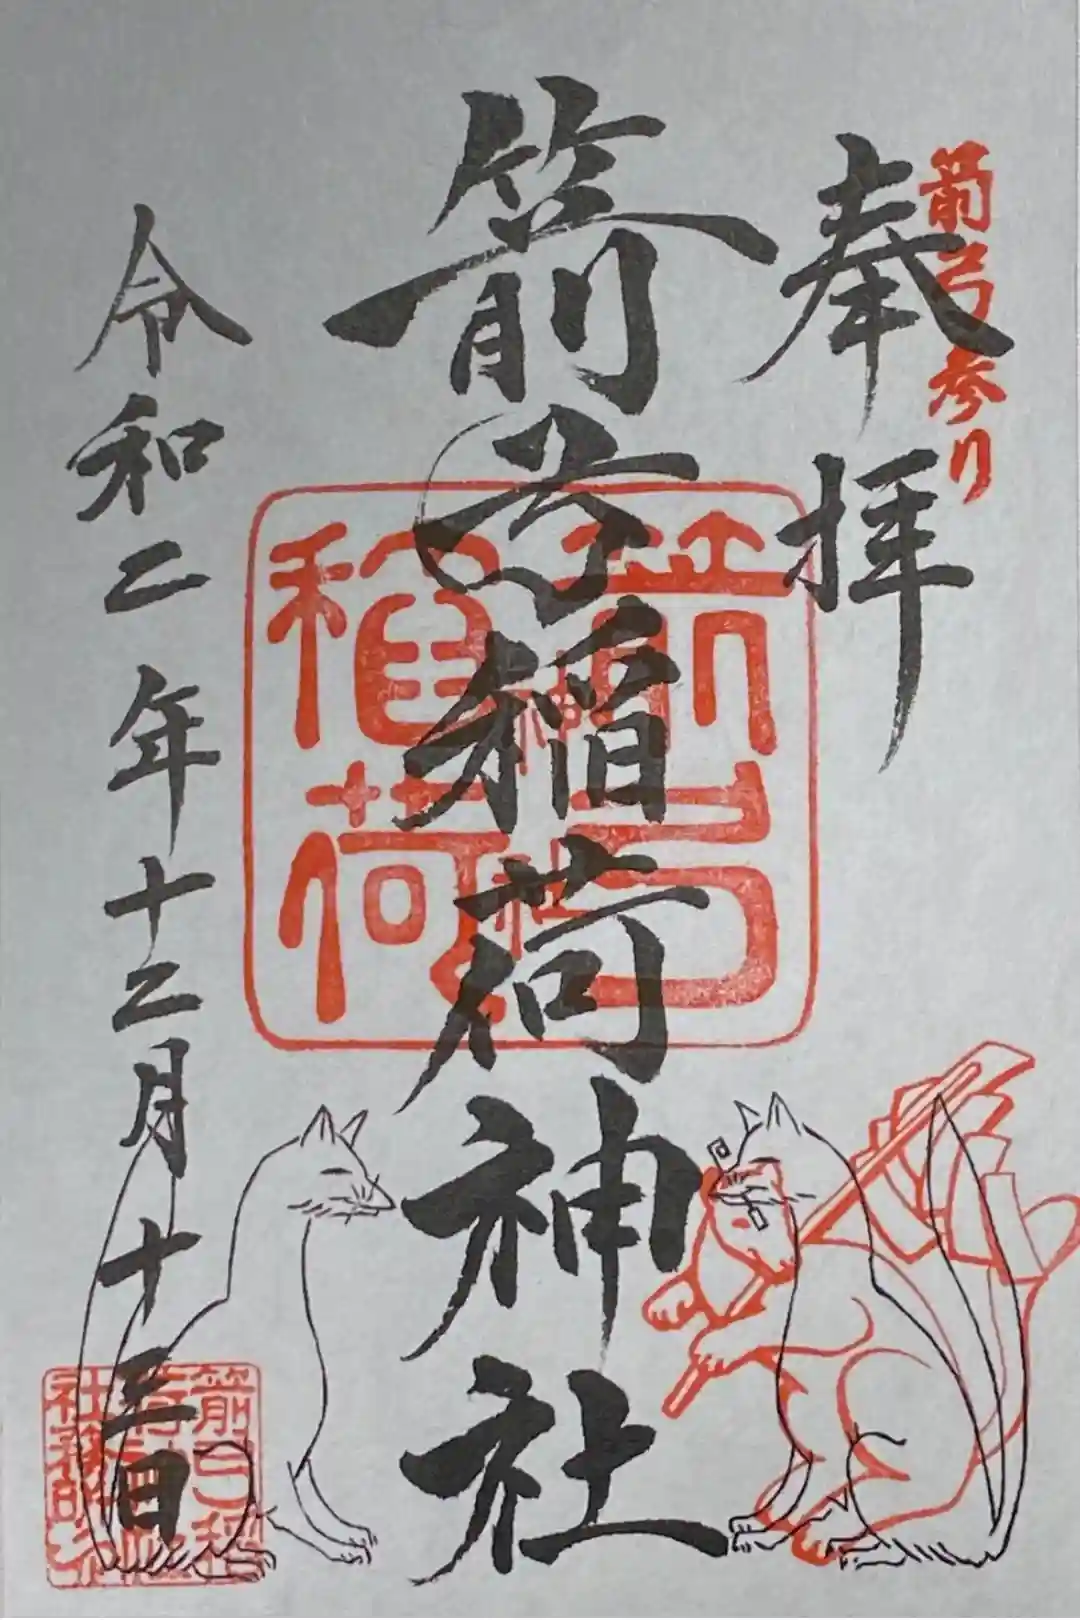 箭弓参り
奉拝
箭弓稲荷神社
箭弓
稲荷
神社
令和二年十二月十三日
箭弓稲
荷神社
社務所